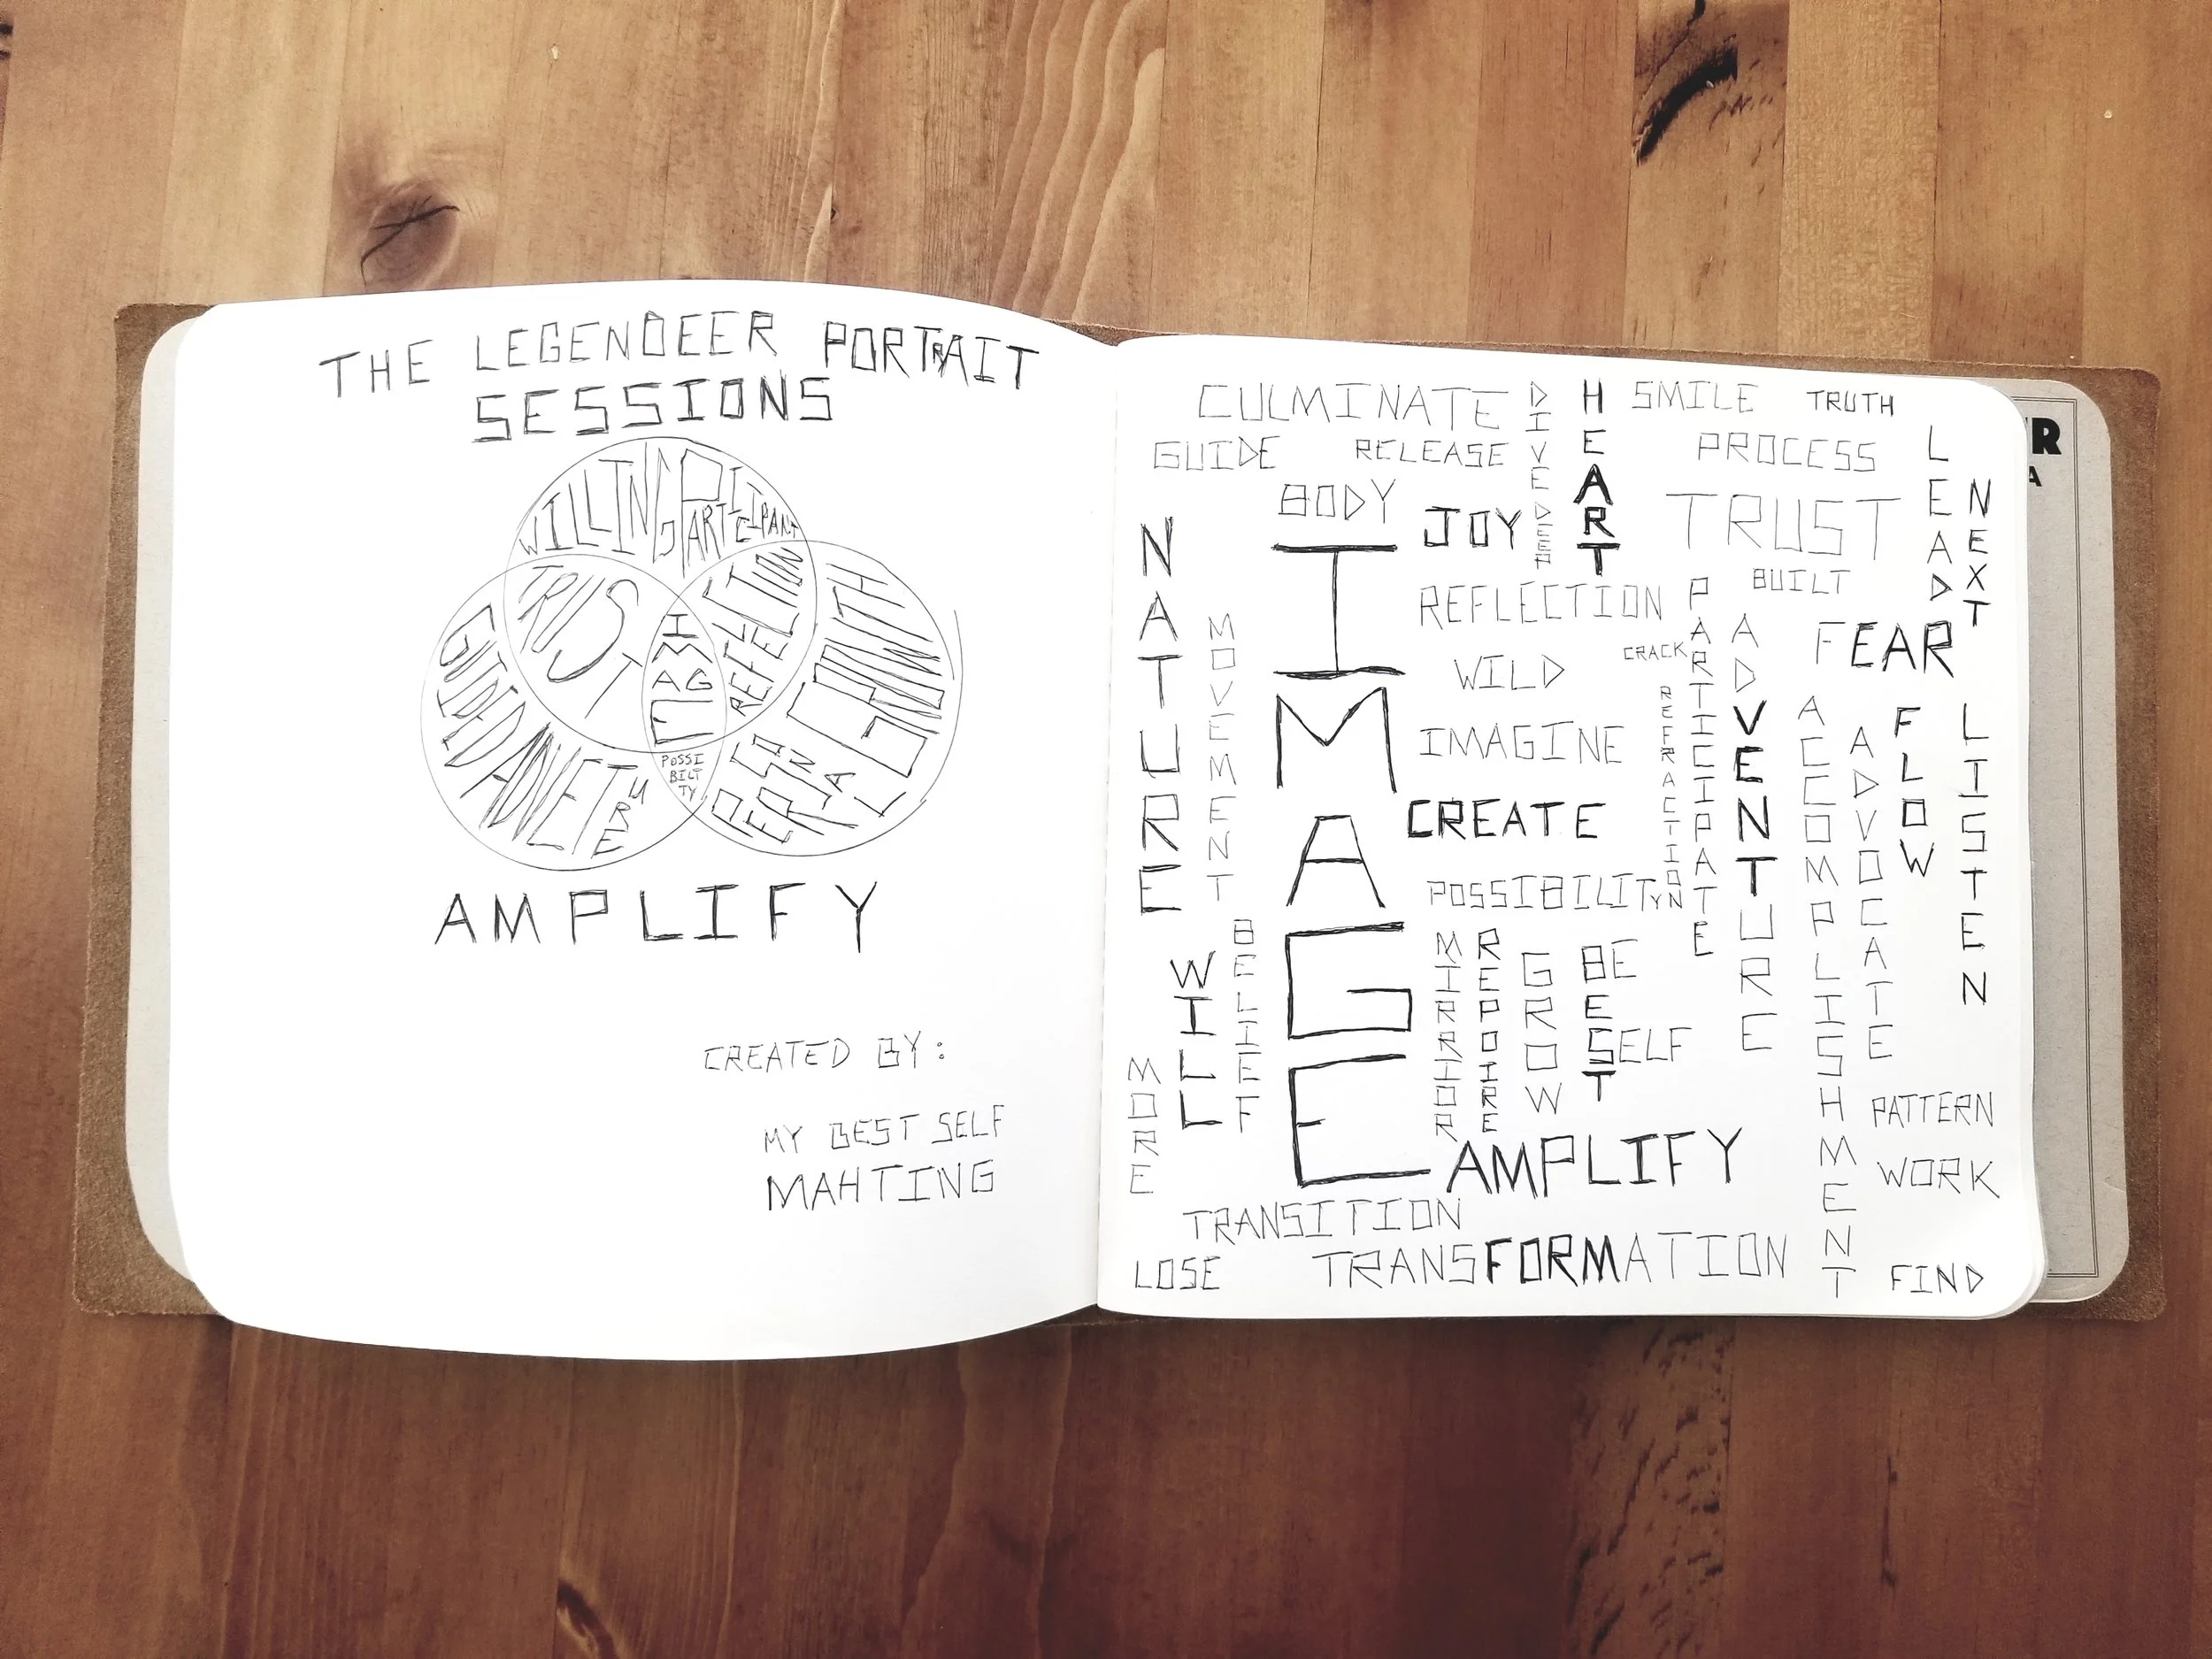 THE LEGENDEER PORTRAIT
SESSIONS
WILLING PARTICIPANT
TRUST
REFELECTION
IMAGE
GUIDED ADVETURE
POSSIBILTTY
PERSONAL GROWTH
AMPLIFY
CREATED BY:
MY BEST SELF
MAHTING
CULMINATE
DIVE DEEP
HEART
SMILE
TRUTH
GUIDE
RELEASE
PROCESS
LEAD
NEXT
BODY
JOY
TRUST
NATURE
IMAGE
REFLECTION
BUILT
MOVEMENT
WILD
CRACK
PARTICIPATE
ADVENTURE
FEAR
REFRACTION
IMAGINE
ACCOMPLISHMENT
ADVOCATE
FLOW
LISTEN
CREATE
POSSIBILITY
WILL
BELIEF
MIRRIOR
REPOIRE
GROW
BE
BEST
SELF
MORE
PATTERN
AMPLIFY
WORK
TRANSITION
LOSE
TRANSFORMATION
FIND
ER
A